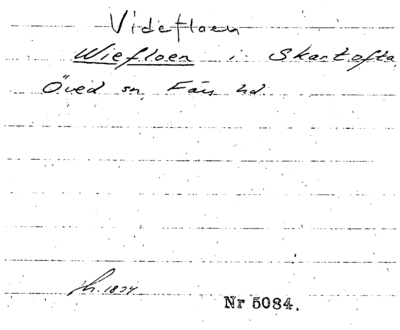 Videfloen
Wiefloen i Skartofta,
Öved sn, Färs hd.
1834
Nr 5084.